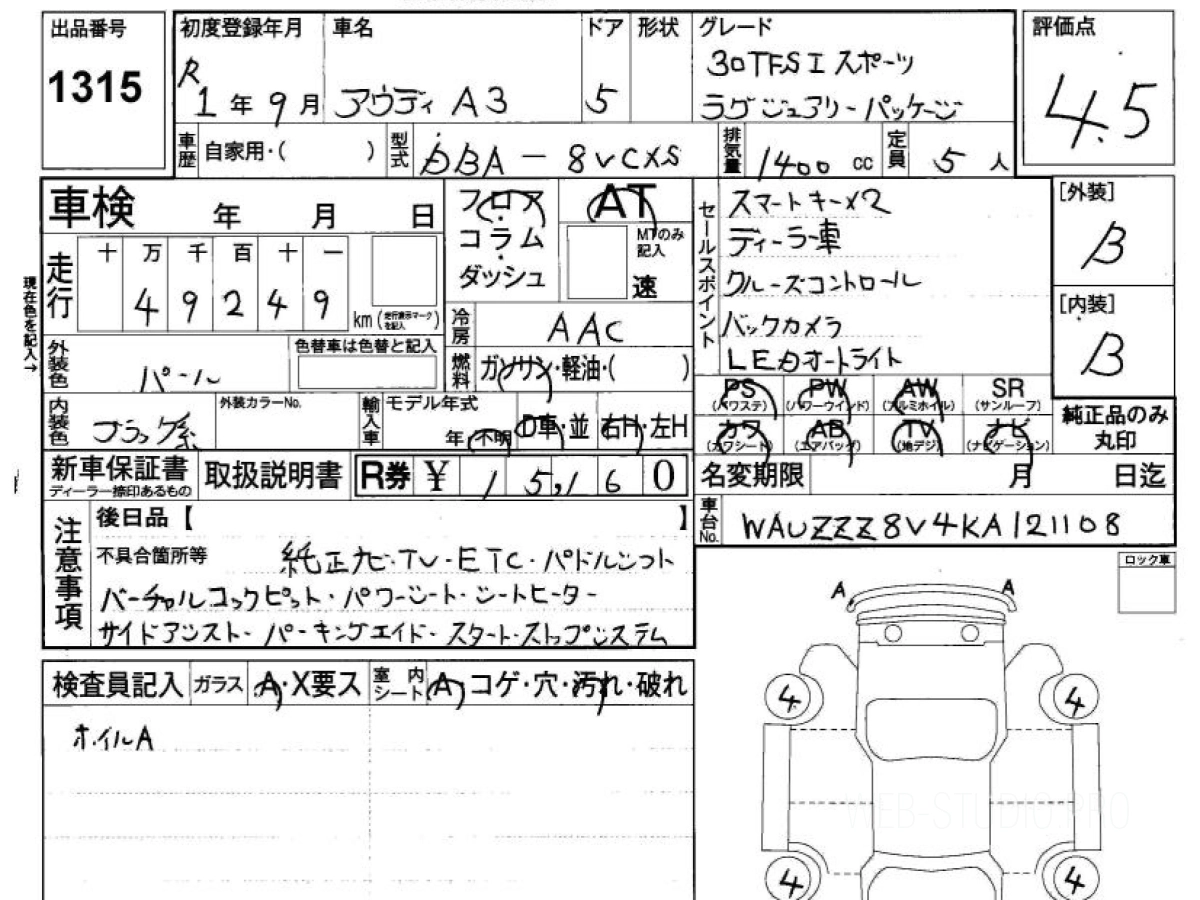 出品番号
1315
初度登録年月
R1年9月
車名
アウディ A3
ドア
5
形状
グレード
30TFSI スポーツ
ラグジュアリーパッケージ
評価点
4.5
車歴
自家用・( )
型式
DBA-8VCXS
排気量
1400 cc
定員
5 人
車検 年 月 日
フロア
コラム
ダッシュ
AT
MTのみ記入
速
セールスポイント
スマートキー×2
ディーラー車
クルーズコントロール
バックカメラ
LEDオートライト
[外装]
B
[内装]
B
現在色を記入→
走行
十 万 千 百 十 一
4 9 2 4 9
km (走行表示マークを記入)
冷房
AAC
燃料
ガソリン・軽油・( )
外装色
パール
色替車は色替と記入
PS (パワステ)
PW (パワーウインド)
AW (アルミホイル)
SR (サンルーフ)
カワ (カワシート)
AB (エアバッグ)
TV (地デジ)
ナビ (ナビゲーション)
純正品のみ
丸印
内装色
ブラック系
外装カラーNo.
輸入車
モデル年式
年・不明
D車・並
右H・左H
新車保証書
ディーラー捺印あるもの
取扱説明書
R券 ¥ 15,160
名変期限 月 日迄
車台No.
WAUZZZ8V4KA121108
注意事項
後日品【 】
不具合箇所等
純正ナビ・TV・ETC・パドルシフト
バーチャルコックピット・パワーシート・シートヒーター
サイドアシスト・パーキングエイド・スタート・ストップシステム
ロック車
検査員記入
ガラス
A・X要ス
室内シート
A コゲ・穴・汚れ・破れ
ホイルA
A A
4 4
4 4
WEB-STUDIO.PRO